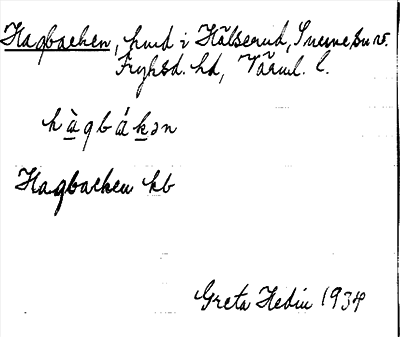 Hagbacken, hmd i Hälserud, Sunnesvn.
Fryksd. hd, Värml. l.
hàgbákən
Hagbacken kb
Greta Hedin 1934